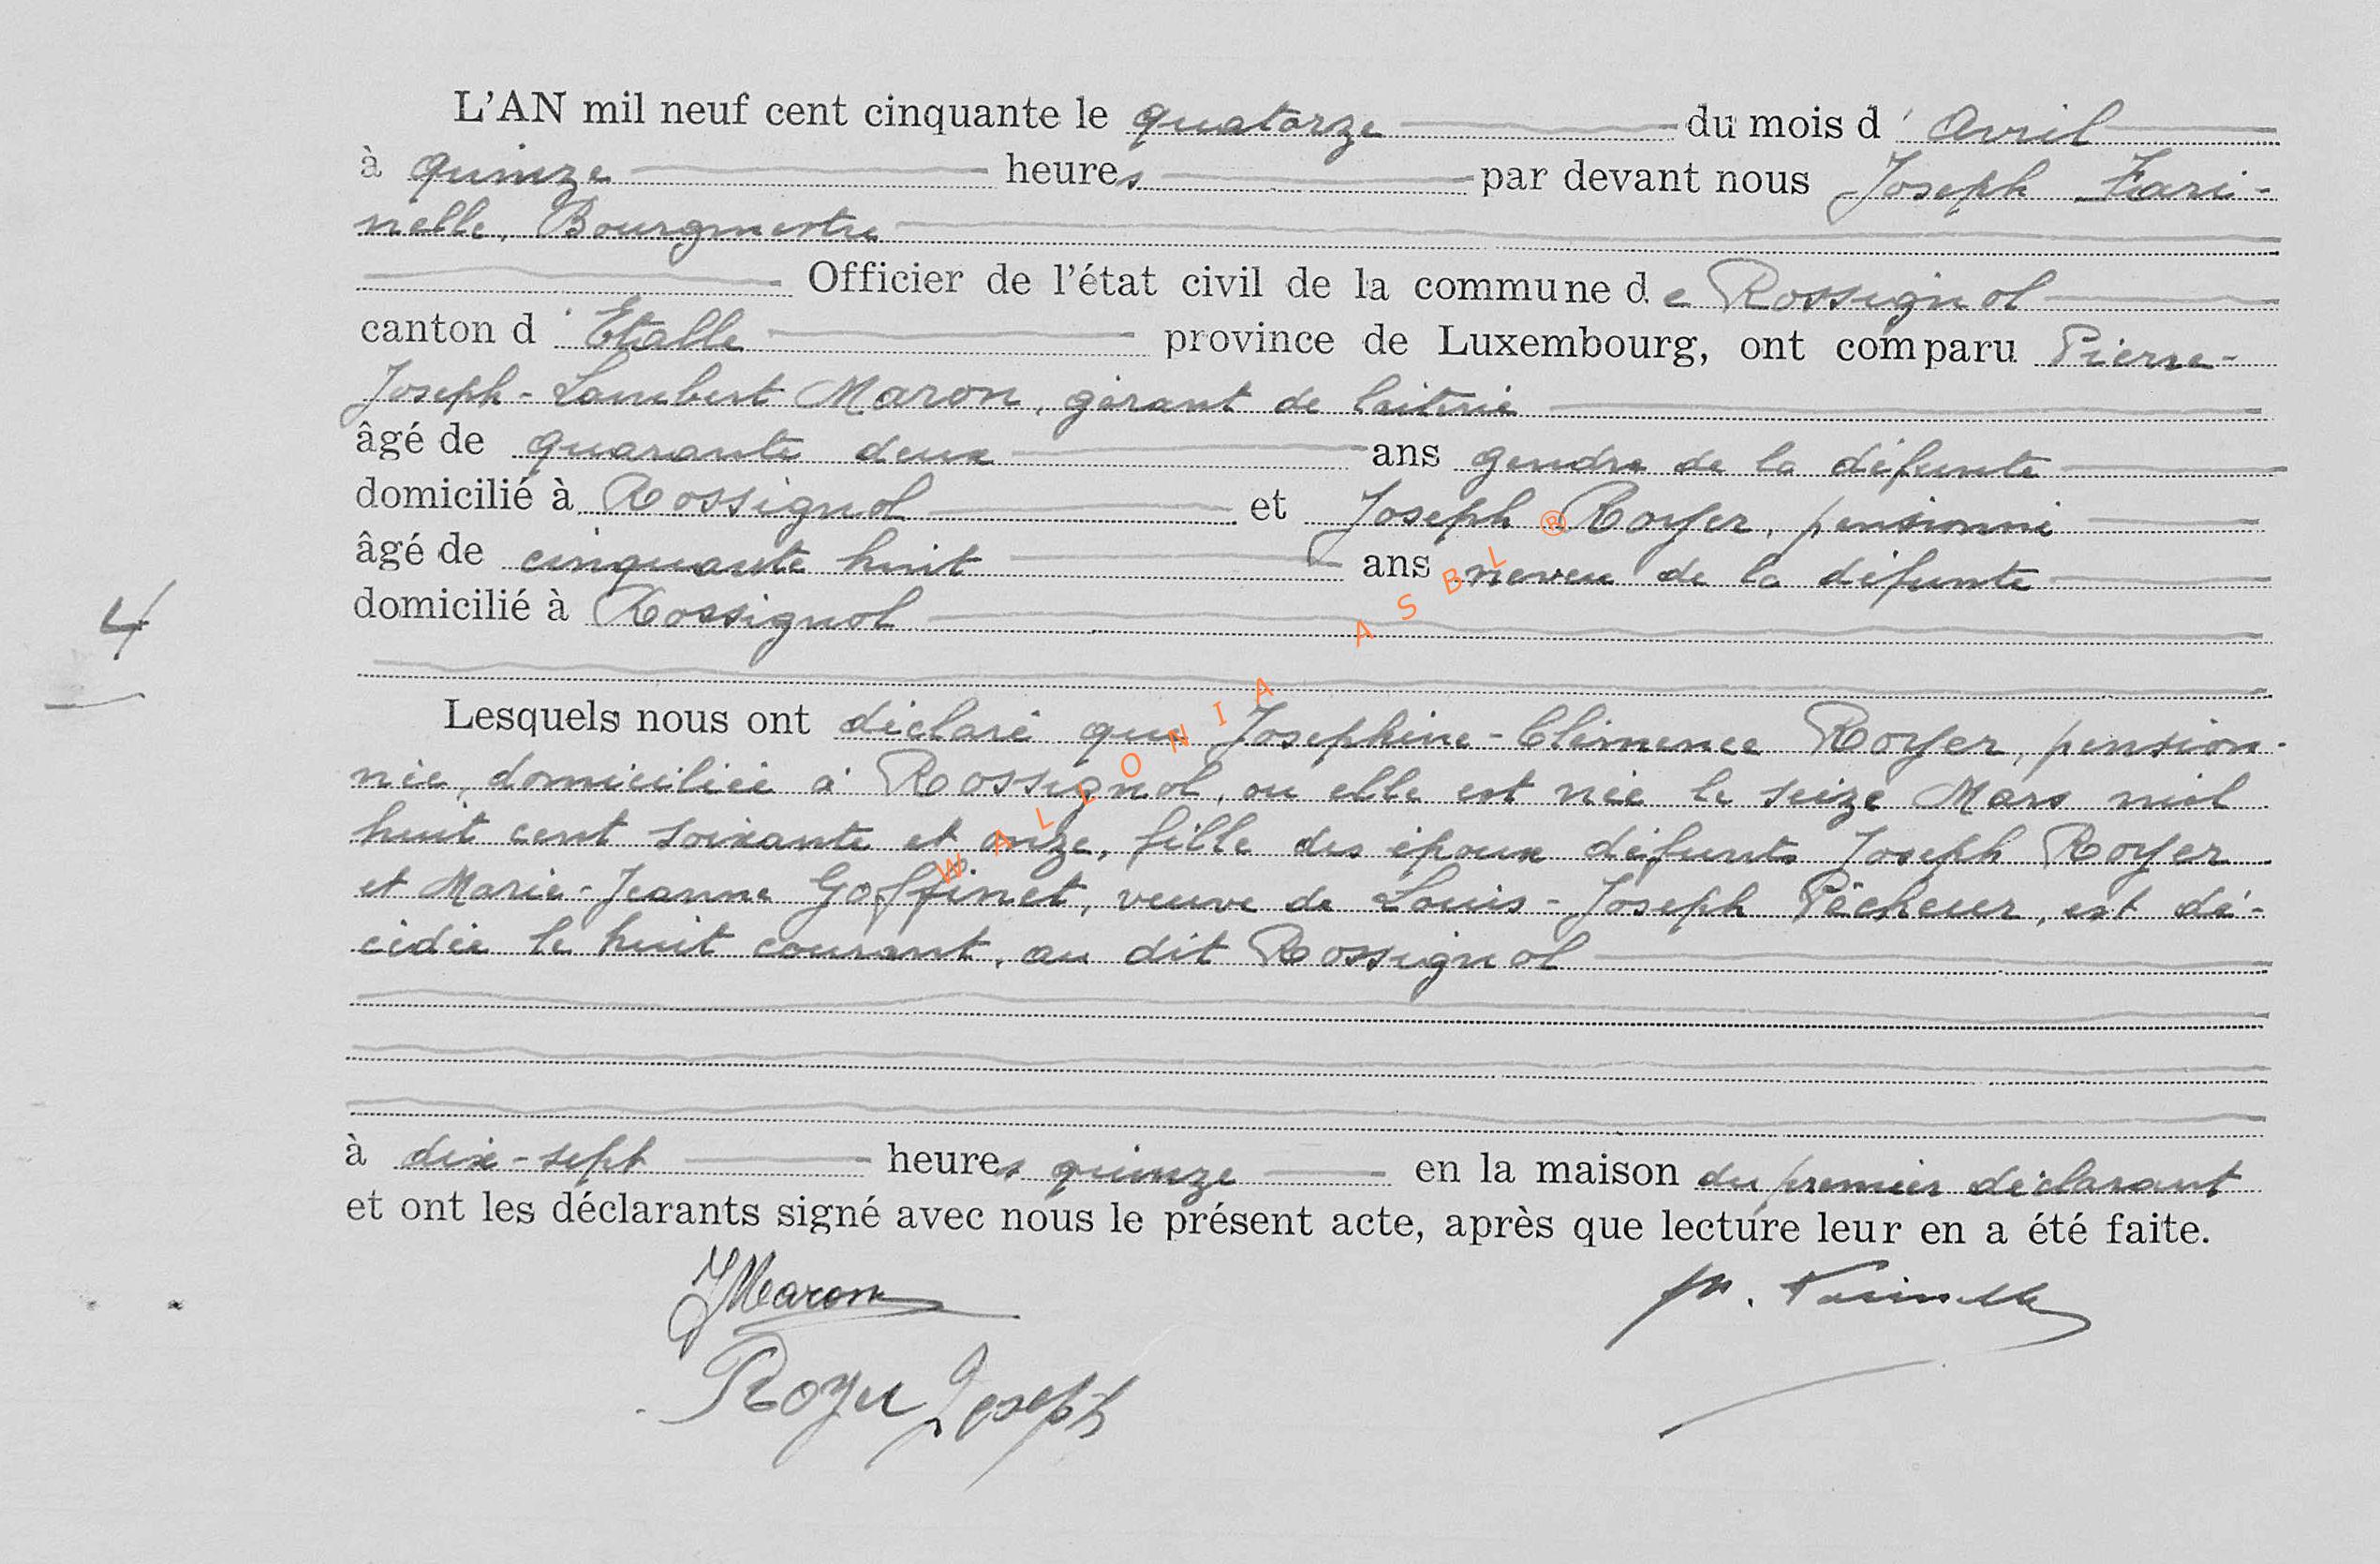 L'AN mil neuf cent cinquante le quatorze du mois d'Avril
à quinze heures par devant nous Joseph Fari-
nelle, Bourgmestre
Officier de l'état civil de la commune de Rossignol
canton d'Etalle province de Luxembourg, ont comparu Pierre-
Joseph-Lambert Maron, gérant de laiterie
âgé de quarante deux ans gendre de la défunte
domicilié à Rossignol et Joseph Royer, pensionné
âgé de cinquante huit ans neveu de la défunte
domicilié à Rossignol
4
Lesquels nous ont déclaré que Joséphine-Clémence Royer, pension-
née, domiciliée à Rossignol, ou elle est née le seize Mars mil
huit cent soixante et onze, fille des époux défunts Joseph Royer
et Marie-Jeanne Goffinet, veuve de Louis-Joseph Pêcheur, est dé-
cédée le huit courant, au dit Rossignol
à dix-sept heures quinze en la maison du premier déclarant
et ont les déclarants signé avec nous le présent acte, après que lecture leur en a été faite.
JMaron
Farinelle
Royer Joseph
WALLONIA ASBL ®